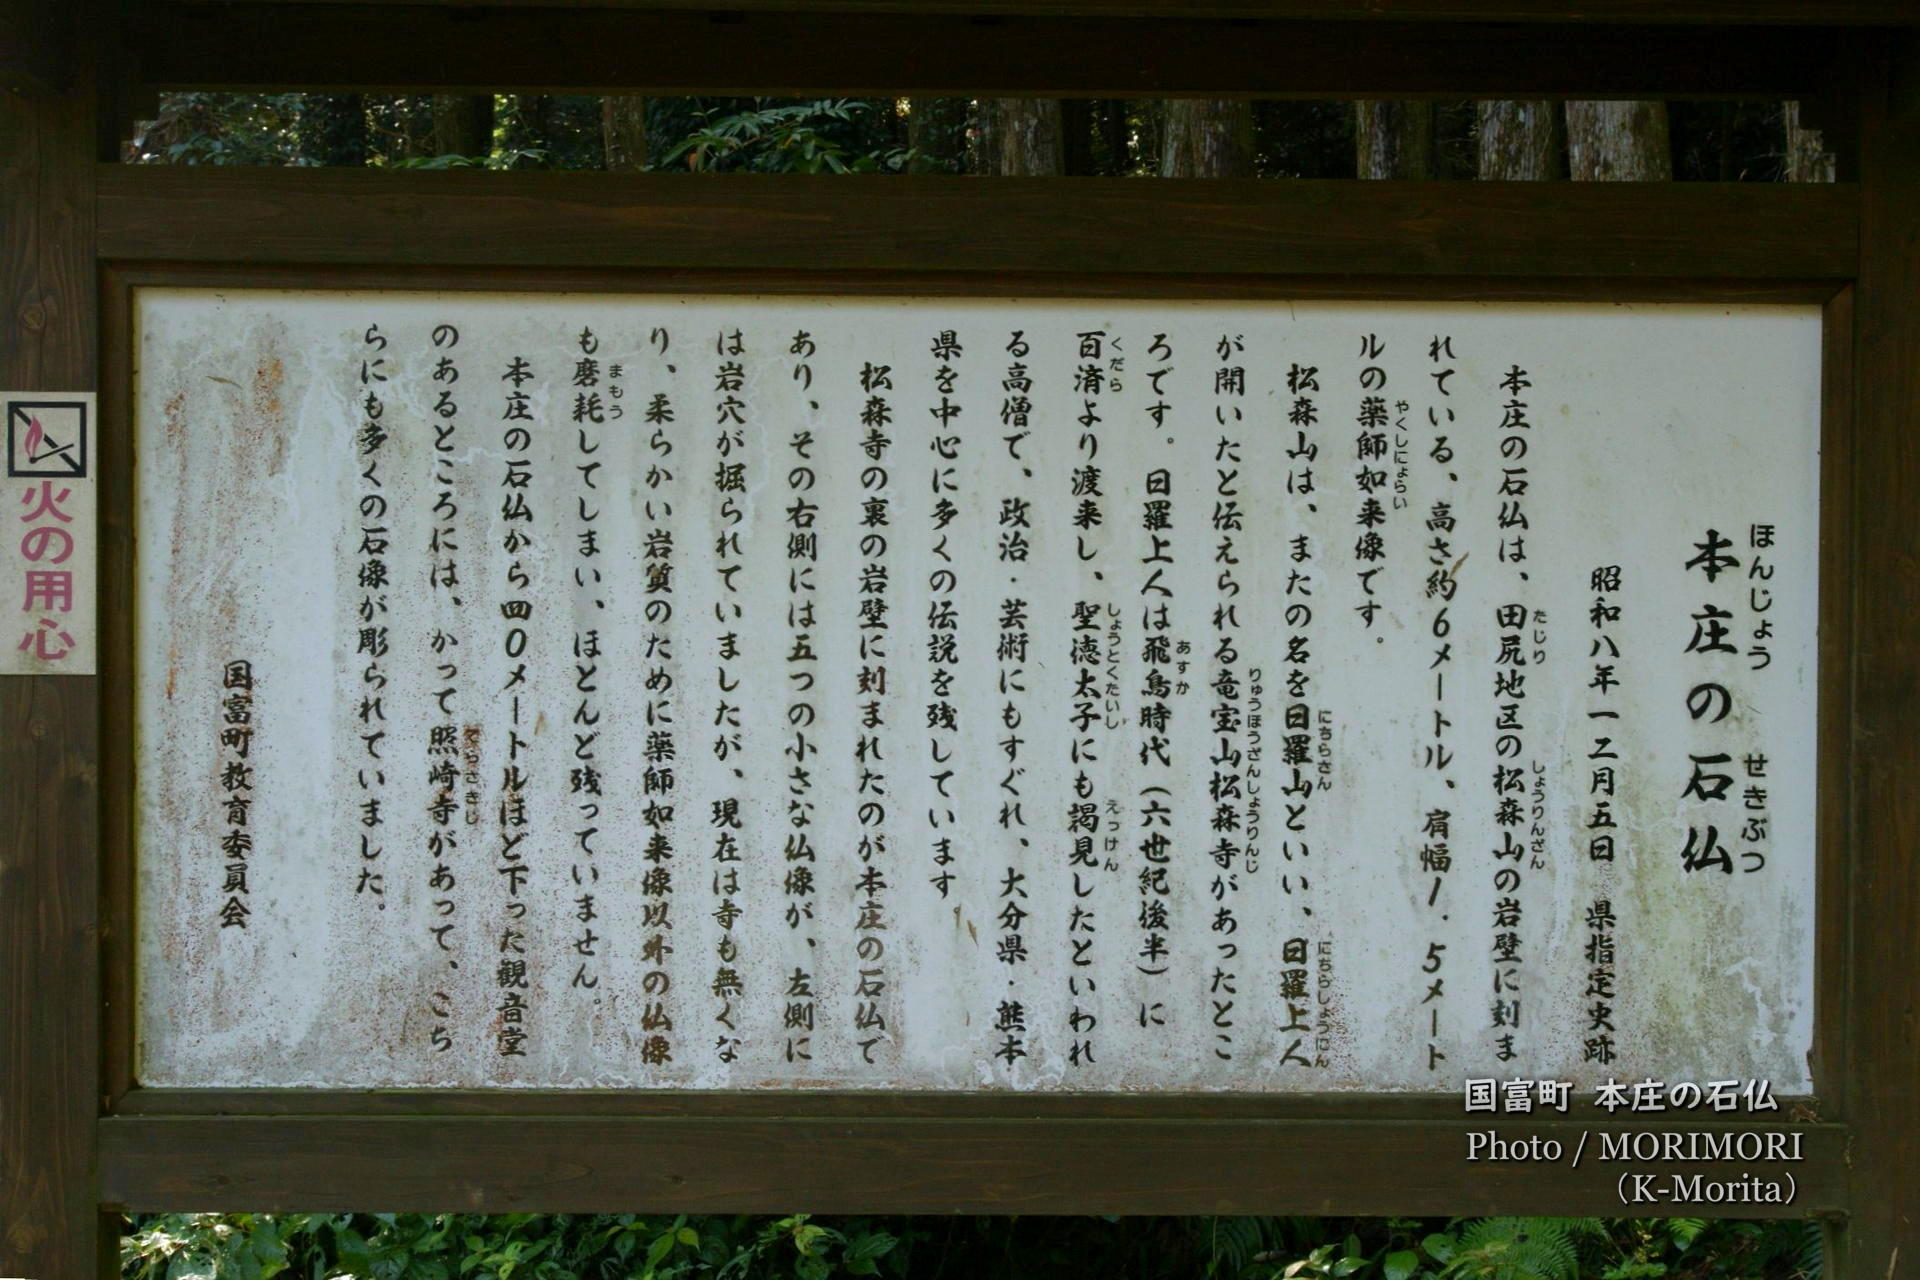 本庄の石仏
ほんじょう せきぶつ
昭和八年一二月五日 県指定史跡
本庄の石仏は、田尻地区の松森山の岩壁に刻ま
たじり しょうりんざん
れている、高さ約6メートル、肩幅1.5メート
ルの薬師如来像です。
やくしにょらい
松森山は、またの名を日羅山といい、日羅上人
にちらさん にちらしょうにん
が開いたと伝えられる竜宝山松森寺があったとこ
りゅうほうざんしょうりんじ
ろです。日羅上人は飛鳥時代（六世紀後半）に
あすか
百済より渡来し、聖徳太子にも謁見したといわれ
くだら しょうとくたいし えっけん
る高僧で、政治・芸術にもすぐれ、大分県・熊本
県を中心に多くの伝説を残しています。
松森寺の裏の岩壁に刻まれたのが本庄の石仏で
あり、その右側には五つの小さな仏像が、左側に
は岩穴が掘られていましたが、現在は寺も無くな
り、柔らかい岩質のために薬師如来像以外の仏像
も磨耗してしまい、ほとんど残っていません。
まもう
本庄の石仏から四0メートルほど下った観音堂
のあるところには、かって照崎寺があって、こち
てらさきじ
らにも多くの石像が彫られていました。
国富町教育委員会
火の用心
国富町 本庄の石仏
Photo / MORIMORI
（K-Morita）